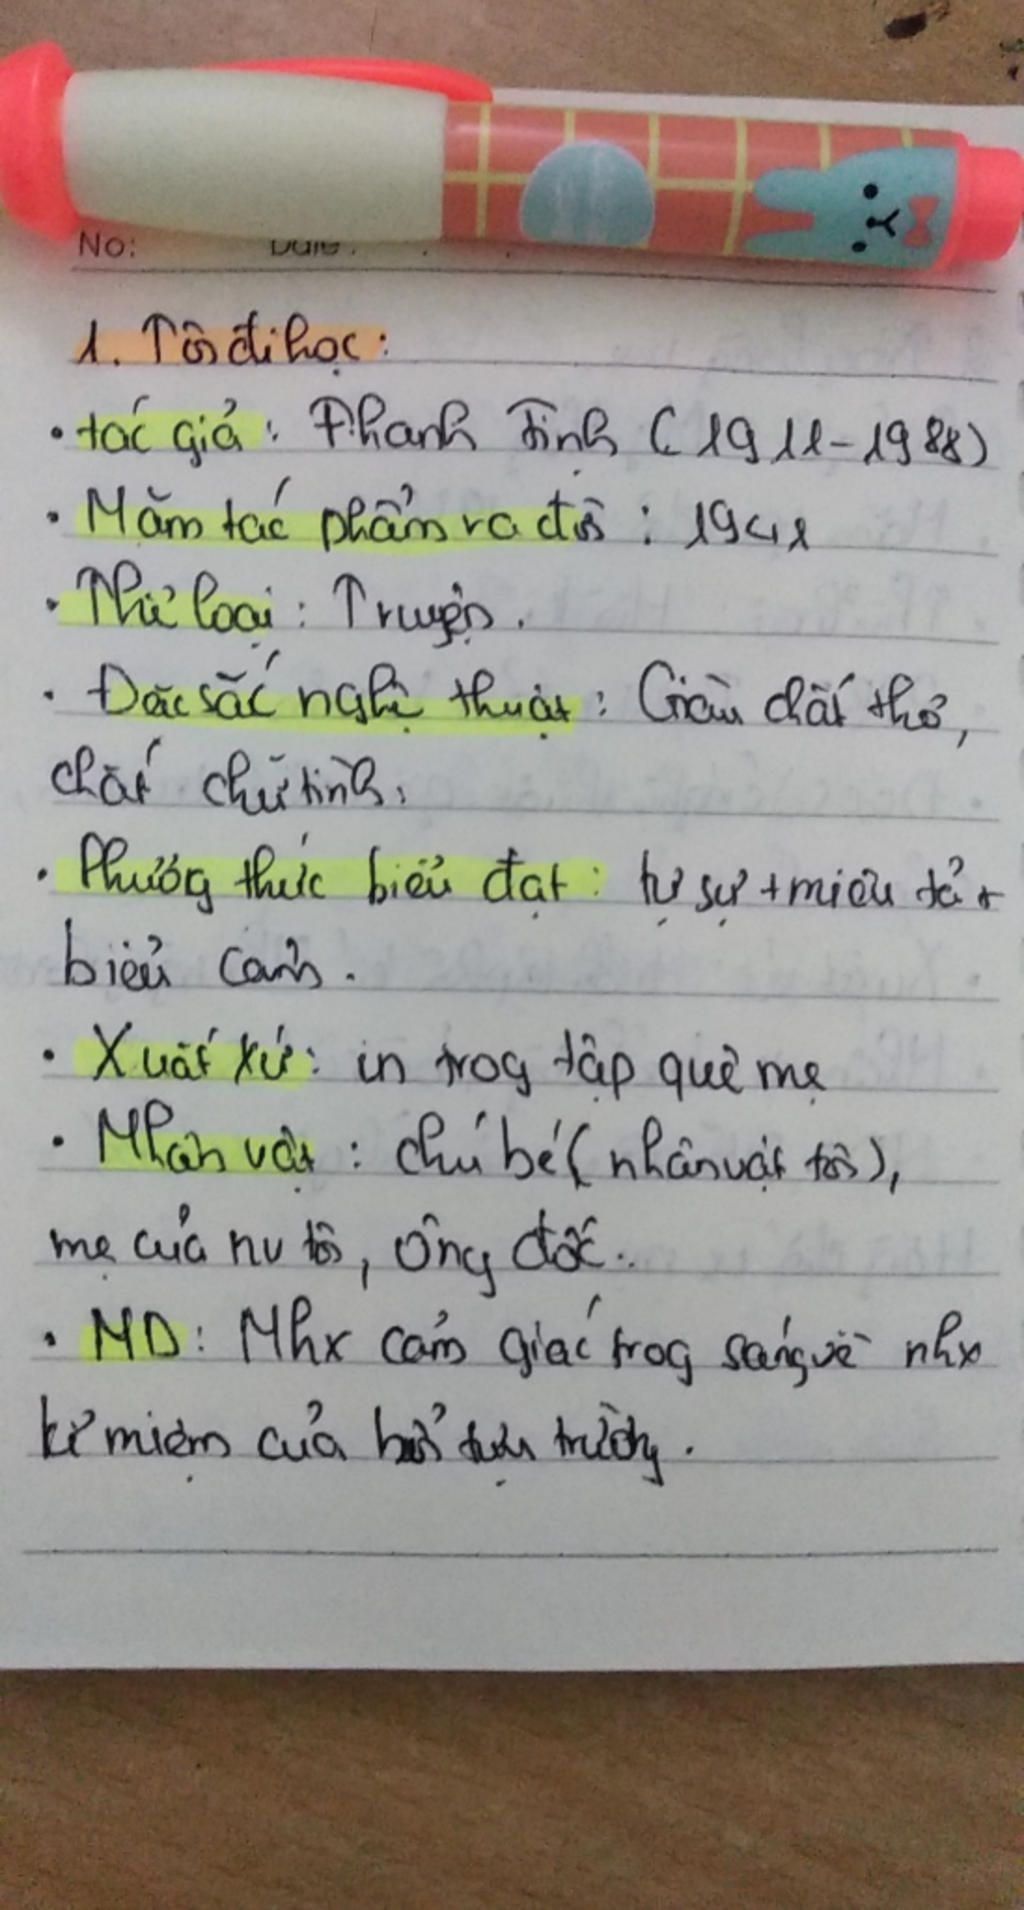 No: Date :
1. Tôi đi học:
• tác giả: Thanh Tịnh (1911-1988)
• Năm tác phẩm ra đời : 1941
• Thể loại : Truyện.
• Đặc sắc nghệ thuật : Giàu chất thơ,
chất chữ tình.
• Phương thức biểu đạt : tự sự + miêu tả +
biểu cảm.
• Xuất xứ : in trog tập quê mẹ
• Nhân vật : chú bé (nhân vật tôi),
mẹ của nv tôi, ông đốc.
• ND: Nhx cảm giác trog sáng về nhx
kỉ niệm của buổi tựu trường.